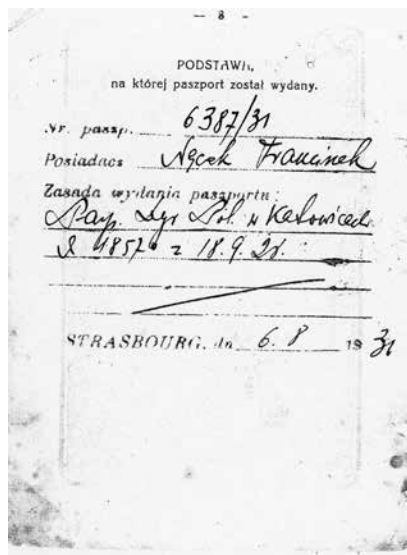 — 8 -
PODSTAWA,
na której paszport został wydany.
Nr. paszp. 6387/31
Posiadacz Franciszek
Zasada wydania paszportu:
Pol. w Katowicach
1857 z 18.9.28.
STRASBOURG, dn 6. 8 1931